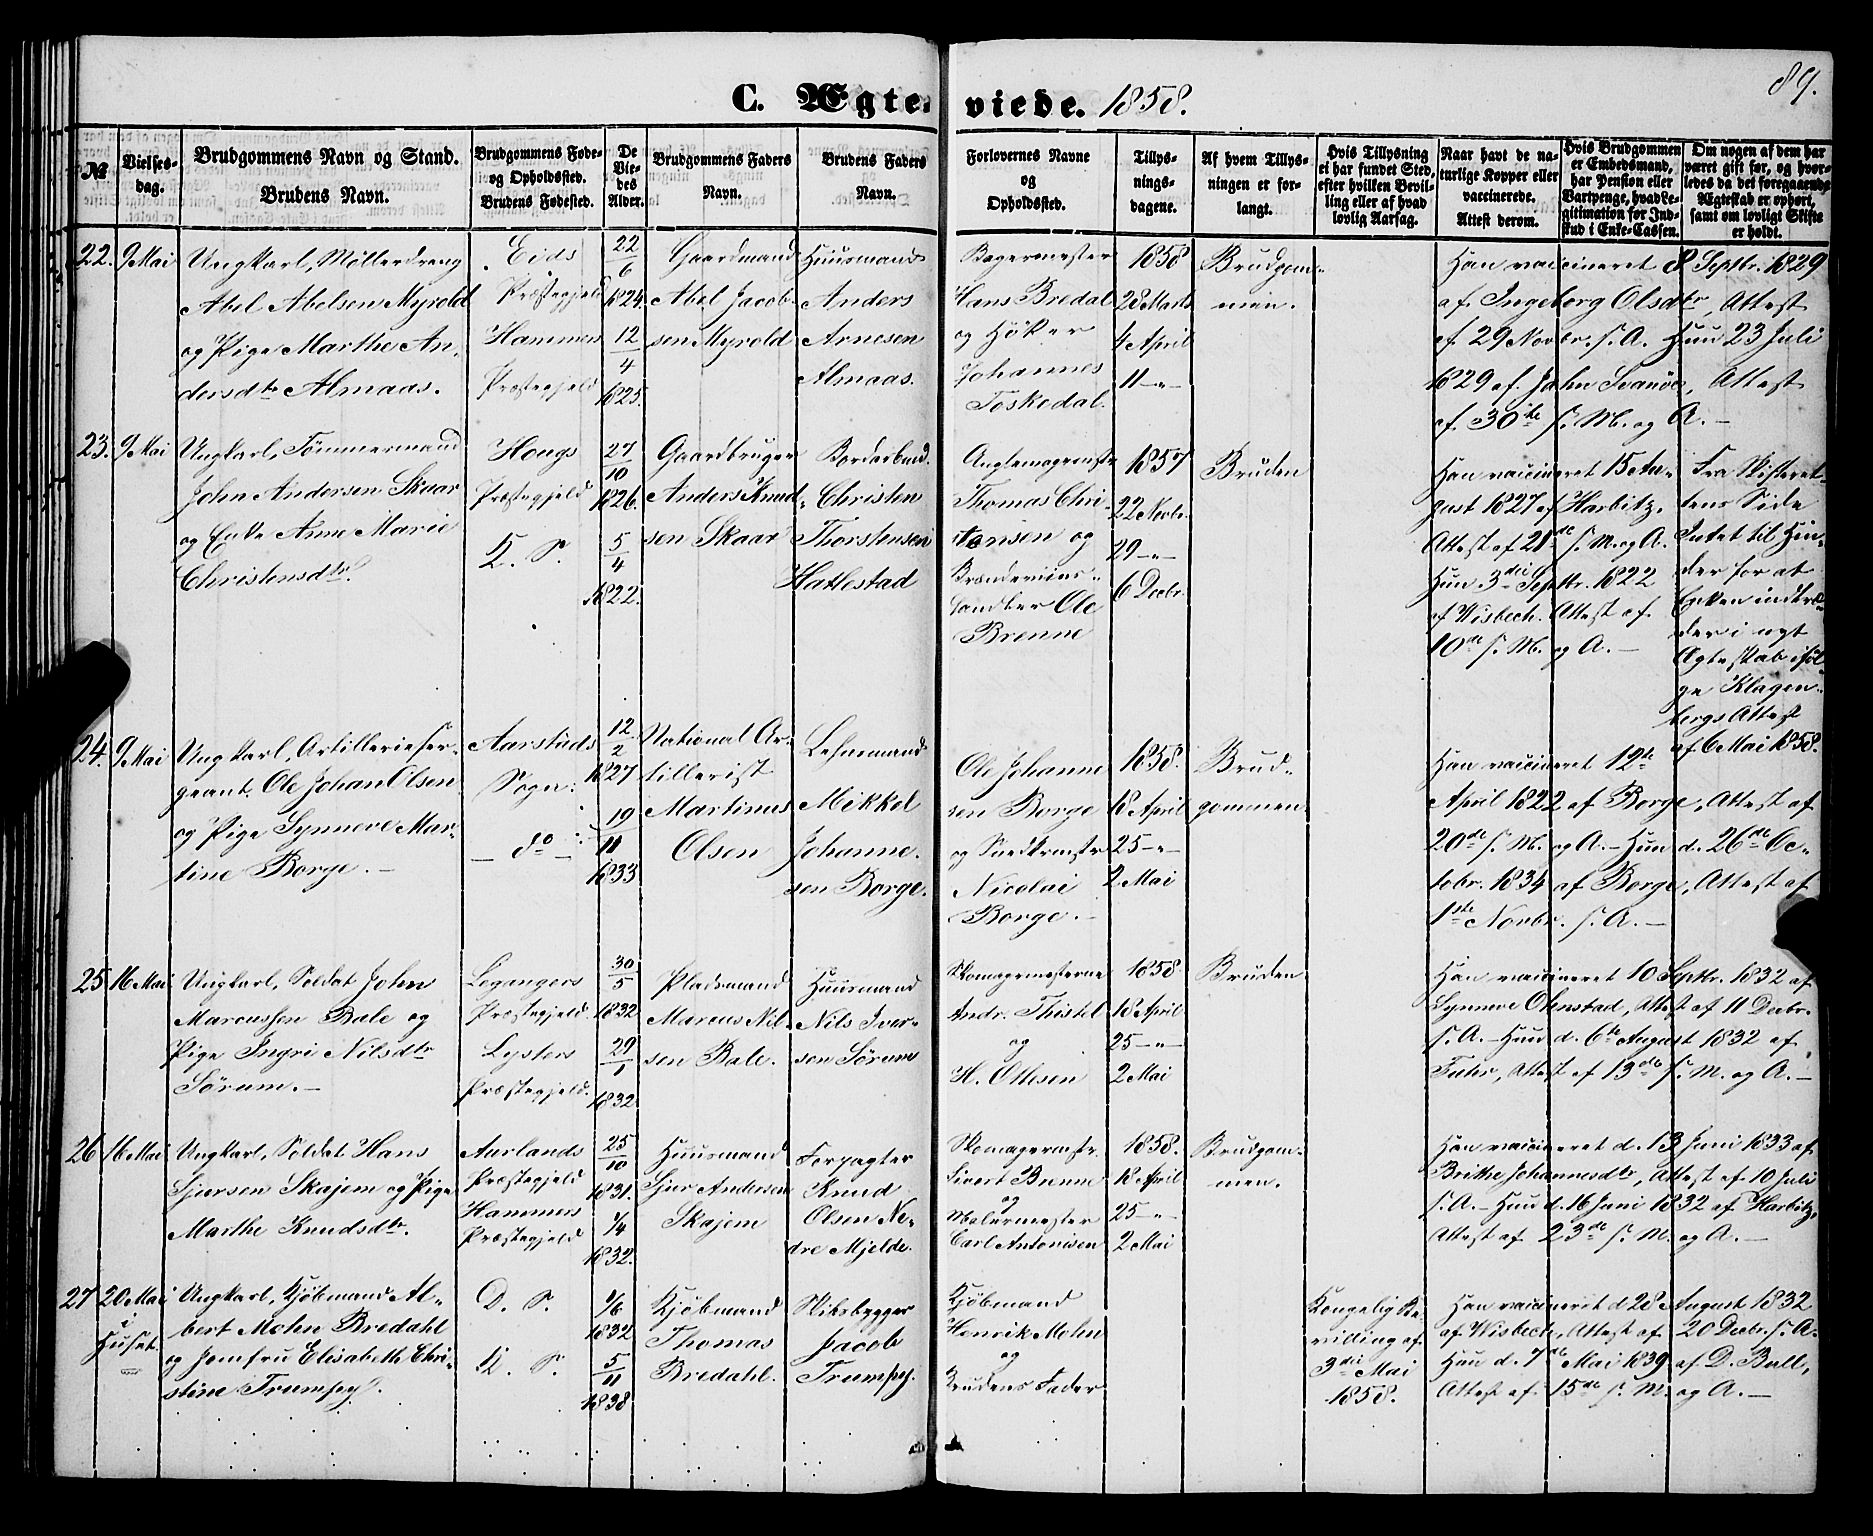 89.
C. Ægteviede. 1858.
№
Vielses-
dag.
Brudgommens Navn og Stand.
Brudens Navn.
Brudgommens Føde-
og Opholdssted.
Brudens Fødested.
De
Vie-
des
Alder.
Brudgommens Faders
Navn.
Brudens Faders
Navn.
Forlovernes Navne
og
Opholdssted.
Tillys-
nings-
dagene.
Af hvem Tillys-
ningen er for-
langt.
Hvis Tillysning
ei har fundet Sted,
efter hvilken Bevil-
ling eller af hvad
lovlig Aarsag.
Naar havt de na-
turlige Kopper eller
vaccinerede.
Attest derom.
Hvis Brudgommen
er Embedsmand,
har Pension eller
Vartpenge, hvad Le-
gitimation for Ind-
skud i Enke-Cassen.
Om nogen af dem har
været gift før, og hvor-
ledes da det foregaaende
Ægteskab er ophørt,
samt om lovligt Skifte
er holdt.
22. 9 Mai
Ungkarl, Møllerdreng
Abel Abelsen Myrold
og Pige Marthe An-
dersdtr Almaas.
Eids
Præstegjeld
Hammers
Præstegjeld
22/6
1824.
12/4
1825.
Gaardmand
Abel Jacob-
sen Myrold
Huusmand
Anders
Arnesen
Almaas.
Bagermester
Hans Bredal
og Høker
Johannes
Toskedal.
1858
28 Marts
4 April
11 -"-
Brudgom-
men.
Han vaccineret 8 Septbr. 1829
af Ingeborg Olsdtr, Attest
af 29 Novbr. s. A. Hun 23 Juli
1829 af John Svanøe, Attest
af 30te s. M. og A. -
23. 9 Mai
Ungkarl, Tømmermand
John Andersen Skaar
og Enke Anne Marie
Christensdtr.
Hougs
Præstegjeld
K. S.
27/10
1826.
5/4
1822.
Gaardbruger
Anders Knud-
sen Skaar
Bordarbeid.
Christen
Thorstensen
Hatlestad
Thomas Chri-
stensen og
Ole
Brenne
1857
22 Novbr.
29 -"-
6 Decbr.
Bruden
Han vaccineret 15 Au-
gust 1827 af Harbitz.
Attest af 21de s. M. og A.
Hun 3die Septbr. 1822
af Wisbech. Attest af
10de s. M. og A. -
Fra Skifteret-
tens Side
Intet til Hin-
der for at
Enken indtræ-
der i nyt
Ægteskab iføl-
ge Klagen-
bergs Attest
af 6 Mai 1858.
24. 9 Mai
Ungkarl, Artilleriser-
geant. Ole Johan Olsen
og Pige Synneve Mar-
tine Borge. -
Aarstads
Sogn:
- do -
12/2
1827
19/11
1833
National Ar-
tillerist
Martinus
Olsen
Lehnsmand
Mikkel
Johanne-
sen Borge.
Ole Johanne-
sen Borge
og Snedkermstr
Nicolai
Borge. -
1858.
18 April
25 -"-
2 Mai
Brud-
gommen.
Han vaccineret 12te
April 1822 af Borge, Attest af
20de s. M. og A. - Hun d. 26de Oc-
tobr. 1834 af Borge, Attest af
1ste Novbr. s. A. -
25 16 Mai
Ungkarl, Soldat John
Marcussen Bale og
Pige Ingri Nilsdtr
Sørum. -
Leganger
Præstegjeld.
Lysters
Præstegjeld.
30/5
1832
29/1
1832
Pladsmand
Marcus Nil-
sen Bale.
Huusmand
Nils Iver-
sen Sørum
Skomagermesterne
Andr. Thistel
og
H. Ottesen
1858.
18 April
25 -"-
2 Mai
Bruden
Han vaccineret 10 Septbr. 1832 af
Synneve Ohnstad, Attest af 11 Decbr.
s. A. - Hun d. 6te August 1832 af
Fuhr, Attest af 13de s. M. og A. -
26 16 Mai
Ungkarl, Soldat Hans
Sjursen Skajem og Pige
Marthe Knudsdtr.
Aurlands
Præstegjeld
Hammers
Præstegjeld
25/10
1831.
1/4
1832.
Huusmand
Sjur Andersen
Skajem
Forpagter
Knud
Olsen Ne-
dre Mjelde.
Skomagermstr.
Sivert Bunne
og
Malermester
Carl Antonisen
1858.
18 April
25 -"-
2 Mai
Brudgom-
men.
Han vaccineret d. 13 Juni 1833 af
Brithe Johannesdtr, Attest af 10 Juli
s. A. - Hun d. 16 Juni 1832 af Harbitz,
Attest af 23de s. M. og A. -
27 20 Mai
i
Huset.
Ungkarl, Kjøbmand Al-
bert Mohn Bredahl
og Jomfru Elisabeth Chri-
stine Trumpy.
D. S.
K. S.
1/6
1832
5/11
1838
Kjøbmand
Thomas
Bredahl.
Skibsbygger
Jacob
Trumpy.
Kjøbmand
Henrik Mohn
og
Brudens Fader
Kongelig Be-
villing af
3die Mai
1858.
Han vaccineret d 28 August 1832
af Wisbech, Attest af 20 Decbr. s. A.
Hun d. 7de Mai 1839 af D. Bull,
Attest af 15de s. M. og A. -